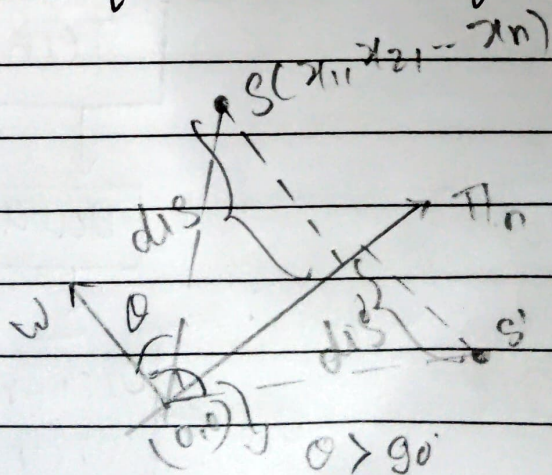 S(x₁, x₂, -- xₙ)
dis
πₙ
w
θ
dis
S'
(0,0)
θ > 90°